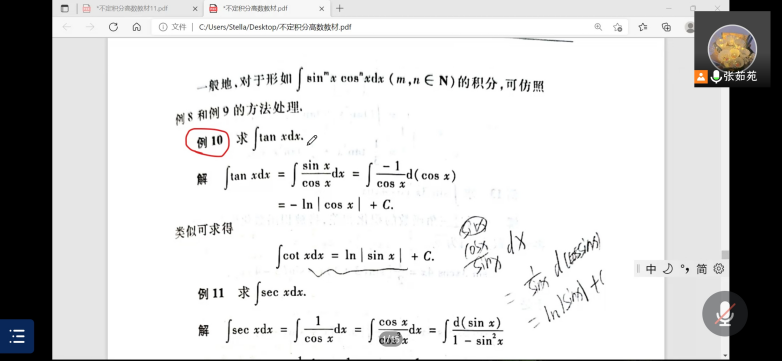 *不定积分高数教材11.pdf
*不定积分高数教材.pdf
文件 | C:/Users/Stella/Desktop/不定积分高数教材.pdf
张茹苑
一般地,对于形如∫sin^m x cos^n xdx (m,n∈N)的积分,可仿照
例8和例9的方法处理.
例10 求∫tan xdx.
解 ∫tan xdx = ∫ sin x / cos x dx = ∫ -1 / cos x d(cos x)
= -ln|cos x| + C.
类似可求得
∫cot xdx = ln|sin x| + C.
cosx / sinx dx
= 1 / sinx d(sinx)
= ln|sinx| + C
中 简
例11 求∫sec xdx.
解 ∫sec xdx = ∫ 1 / cos x dx = ∫ cos x / cos² x dx = ∫ d(sin x) / 1 - sin² x